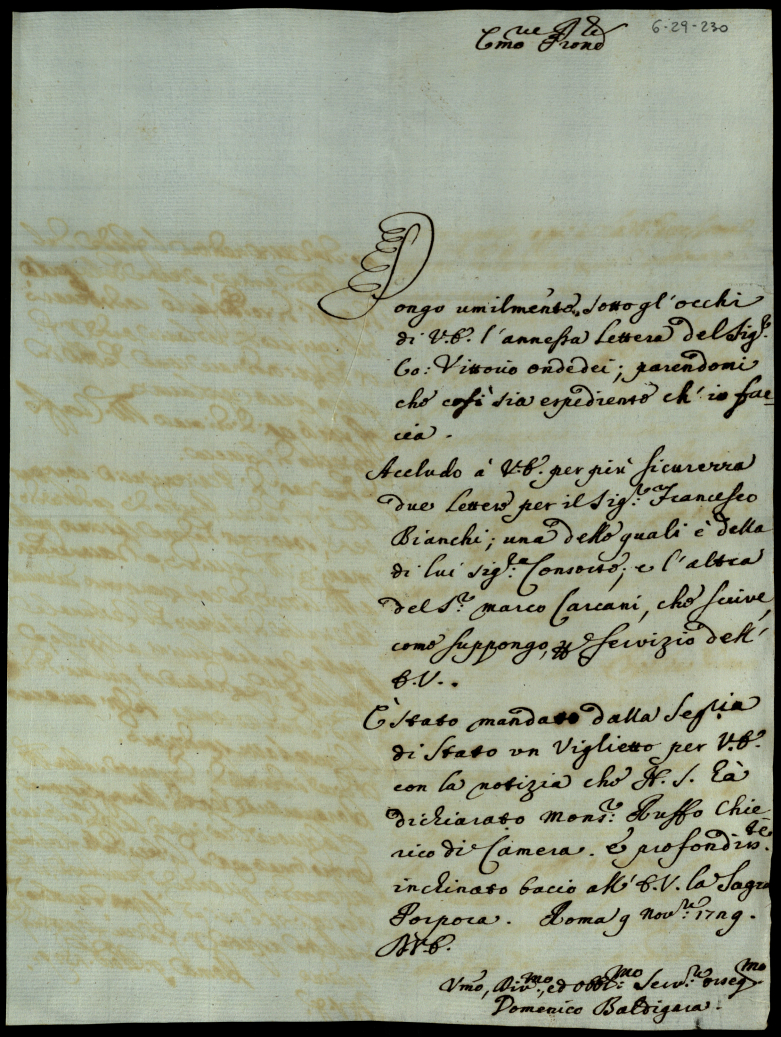 6-29-230
E.mo e R.e Prone
Pongo umilmente sotto gl'occhi
di V.E. l'annessa Lettera del Sig.r
Co: Vittorio Ondedei; parendomi
che così sia espediente ch'io fac=
cia.
Accludo à V.E. per più sicurezza
due Lettere per il Sig.r Francesco
Bianchi; una delle quali è della
di lui Sig.ra Consorte; e l'altra
del S.r Marco Carcani, che scrive,
come suppongo, per servizio dell'
E.V..
È stato mandato dalla Seg.ria
di Stato un Viglietto per V.E.
con la notizia che N. S. hà
dichiarato Mons.r Ruffo Chie=
rico di Camera. e profondis.te
inchinato baccio all'E.V. la Sagra
Porpora. Roma 9 Nov.re
D.V.E.
Vmo, Div.mo, ed Obbl.mo Serv.re osseq.mo
Domenico Baldigara.